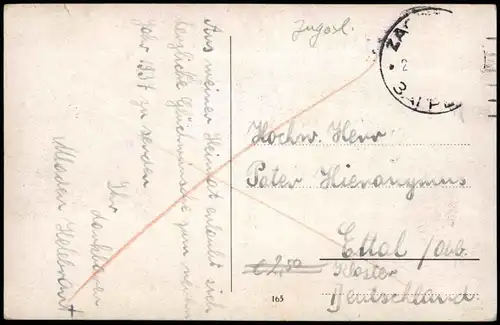 Aus meiner Heimat erlaubt sich
herzliche Glückwünsche zum neuen
Jahr 1937 zu senden
Ihr
dankbarer
Mladen Helebrant
Jugosl.
ZAG
2
3
Hochw. Herr
Pater Hieronymus
Ettal /Obb.
Kloster
Deutschland
€ 2,50
165